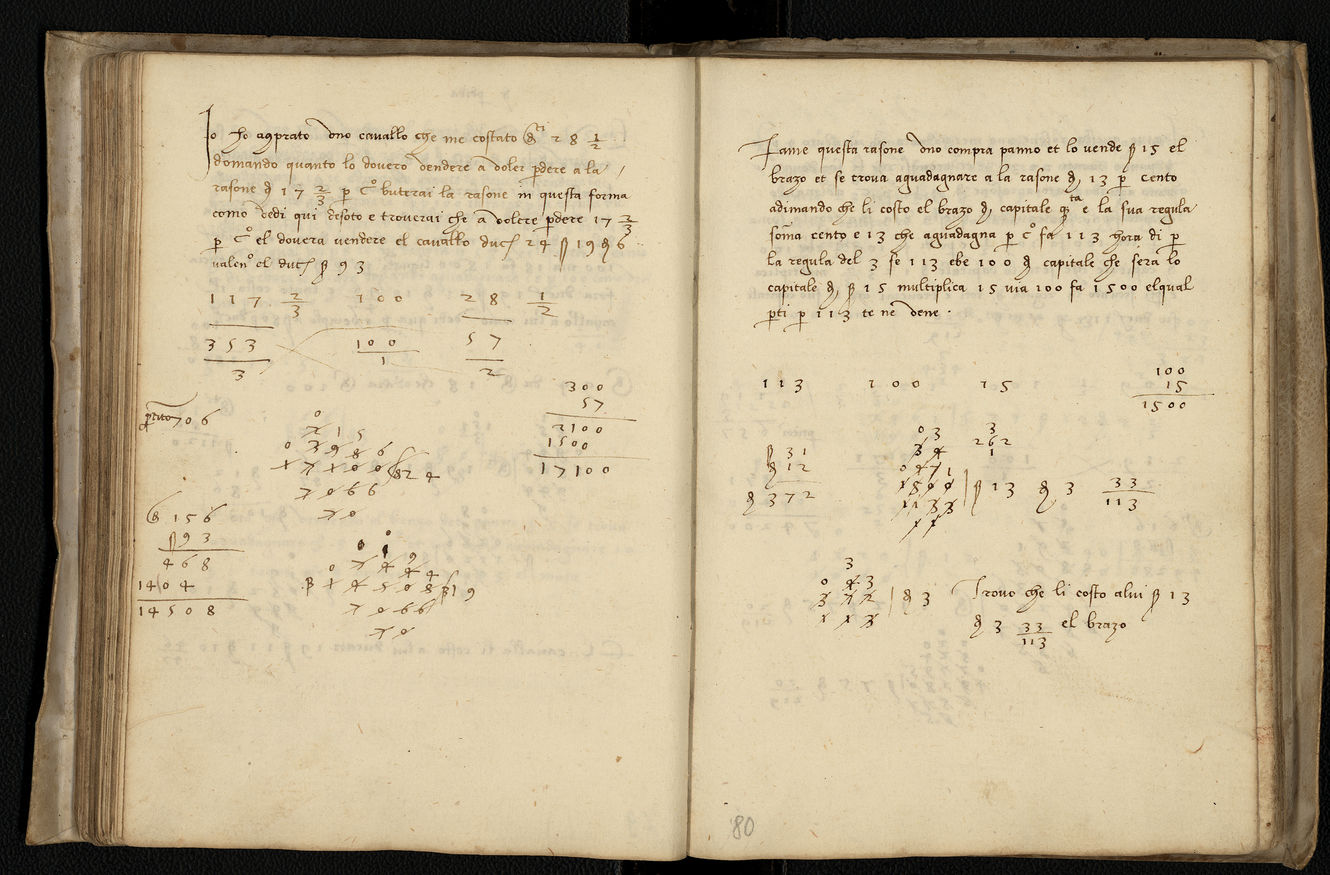 Io ho aqprato uno cavallo che me costato 28 1/2
domando quanto lo dovero vendere a voler pdere a la
rasone 17 2/3 p cº buterai la rasone in questa forma
como vedi qui desoto e troverai che a volere pdere 17 2/3
p cº el dovera vendere el cavallo duc 24 β 19 6
valenº el duc β 93
117 2/3 100 28 1/2
353/3 100/1 57/2
300
57
2100
1500
17100
partito 706
0
2 1 5
0 3 9 8 6
1 7 1 0 0 24
7 0 6 6
7 0
156
β 93
468
1404
14508
0
0 1
7 4 9
0 4 4
β 1 4 5 0 8 β 19
7 0 6 6
7 0
Fame questa rasone uno compra panno et lo vende β 15 el
brazo et se trova aguadagnare a la rasone 13 p cento
adimando che li costo el brazo capitale qta e la sua regula
soma cento e 13 che aguadagna p cº fa 113 hora di p
la regula del 3 se 113 ebe 100 capitale che sera lo
capitale β 15 multiplica 15 via 100 fa 1500 elqual
pti p 113 te ne vene
113 100 15
100
15
1500
β 31
12
372
0 3
3 4
0 4 7 1
1 5 0 0
1 1 3 3
1 1
3
262
1
β 13 3 33/113
3
0 4 3
3 7 2
1 1 3
3
Trovo che li costo alui β 13
3 33/113 el brazo
80